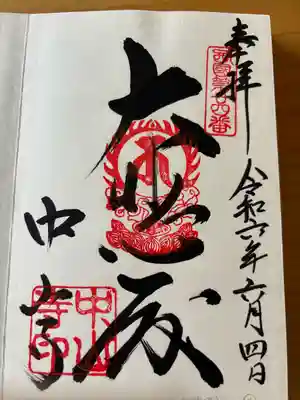 奉拝
令和六年六月四日
大悲殿
中山寺
中山寺印